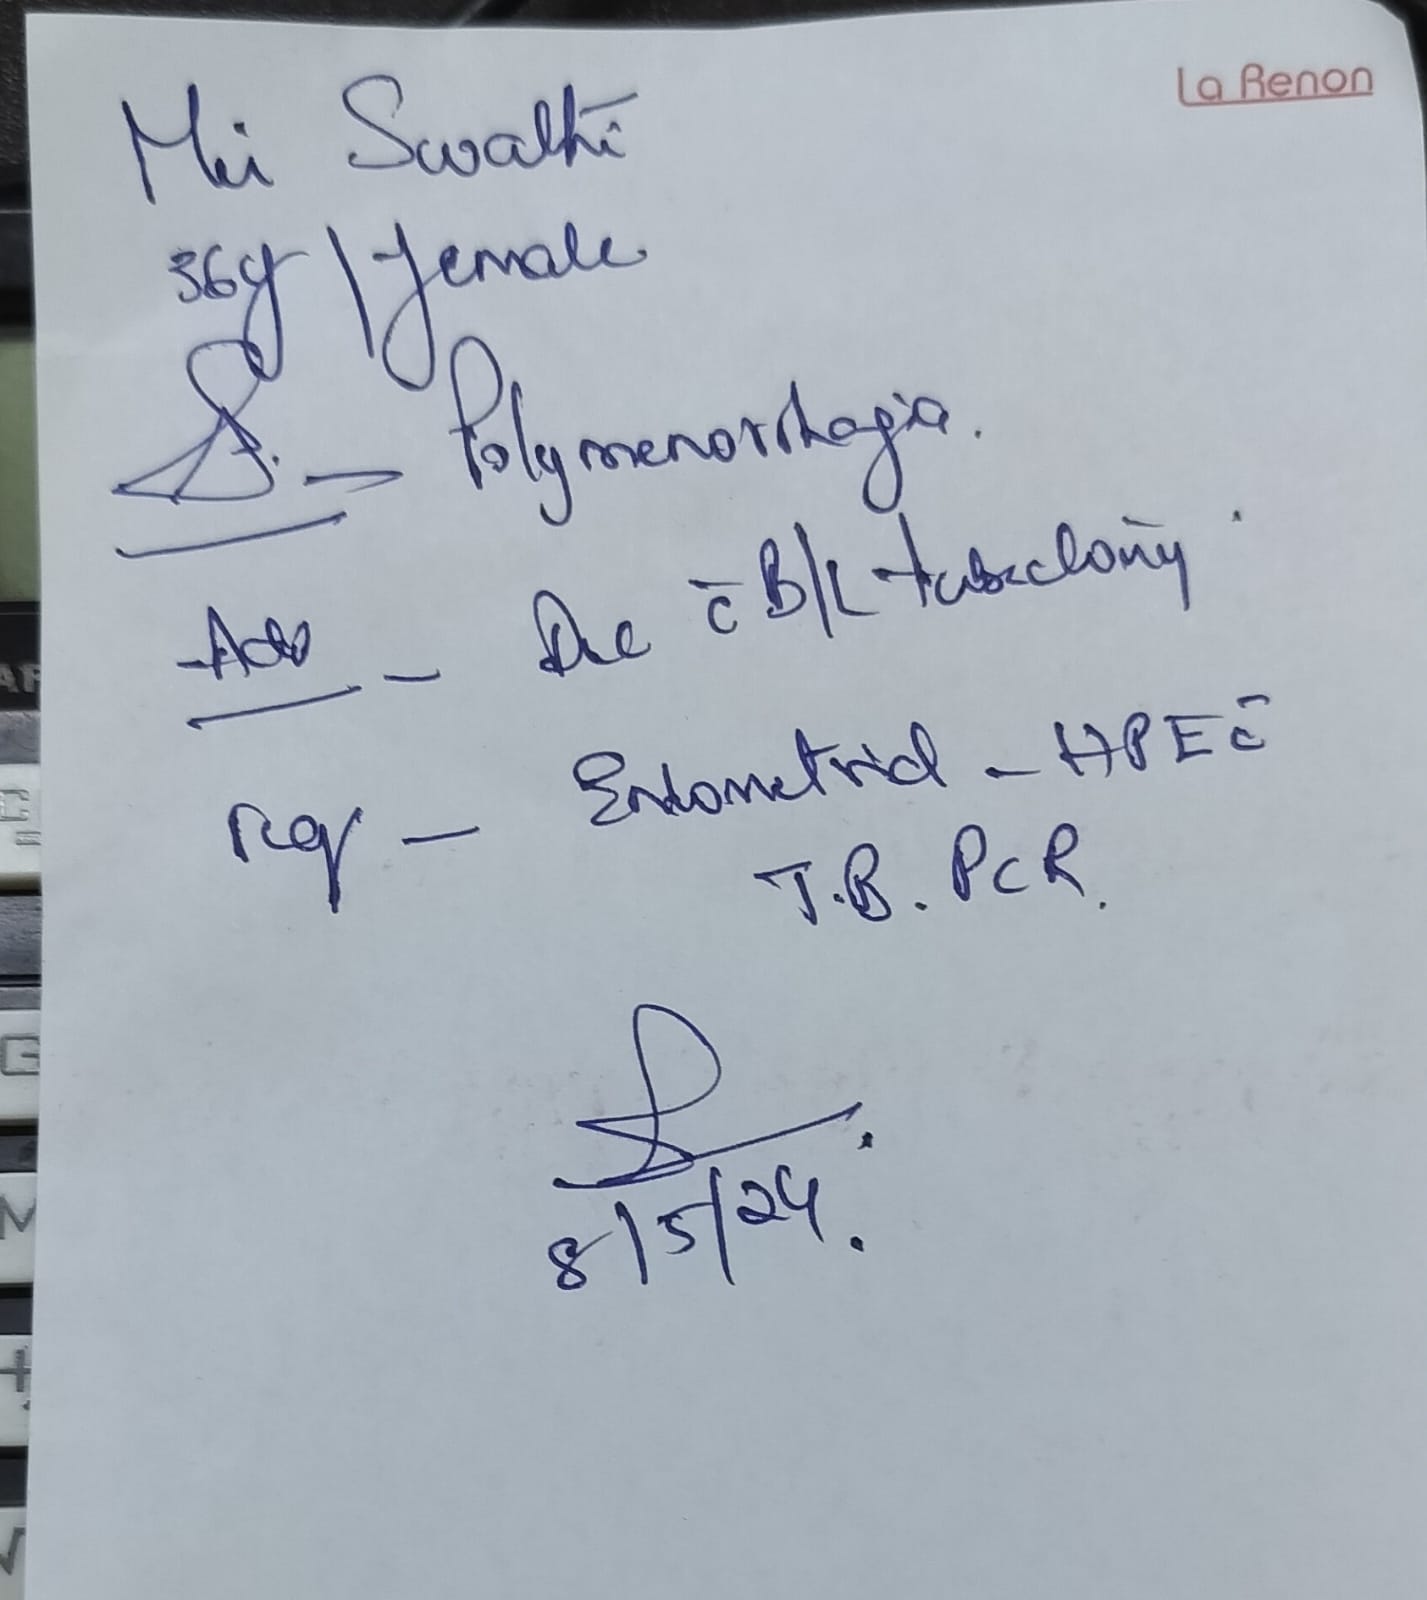 La Renon
Mrs Swathi
36y / female
Δ. — Polymenorrhagia.
Adv — D&C c̄ B/L tubectomy
req — Endometrial - HPE c̄
T.B. PCR.
8/5/24.